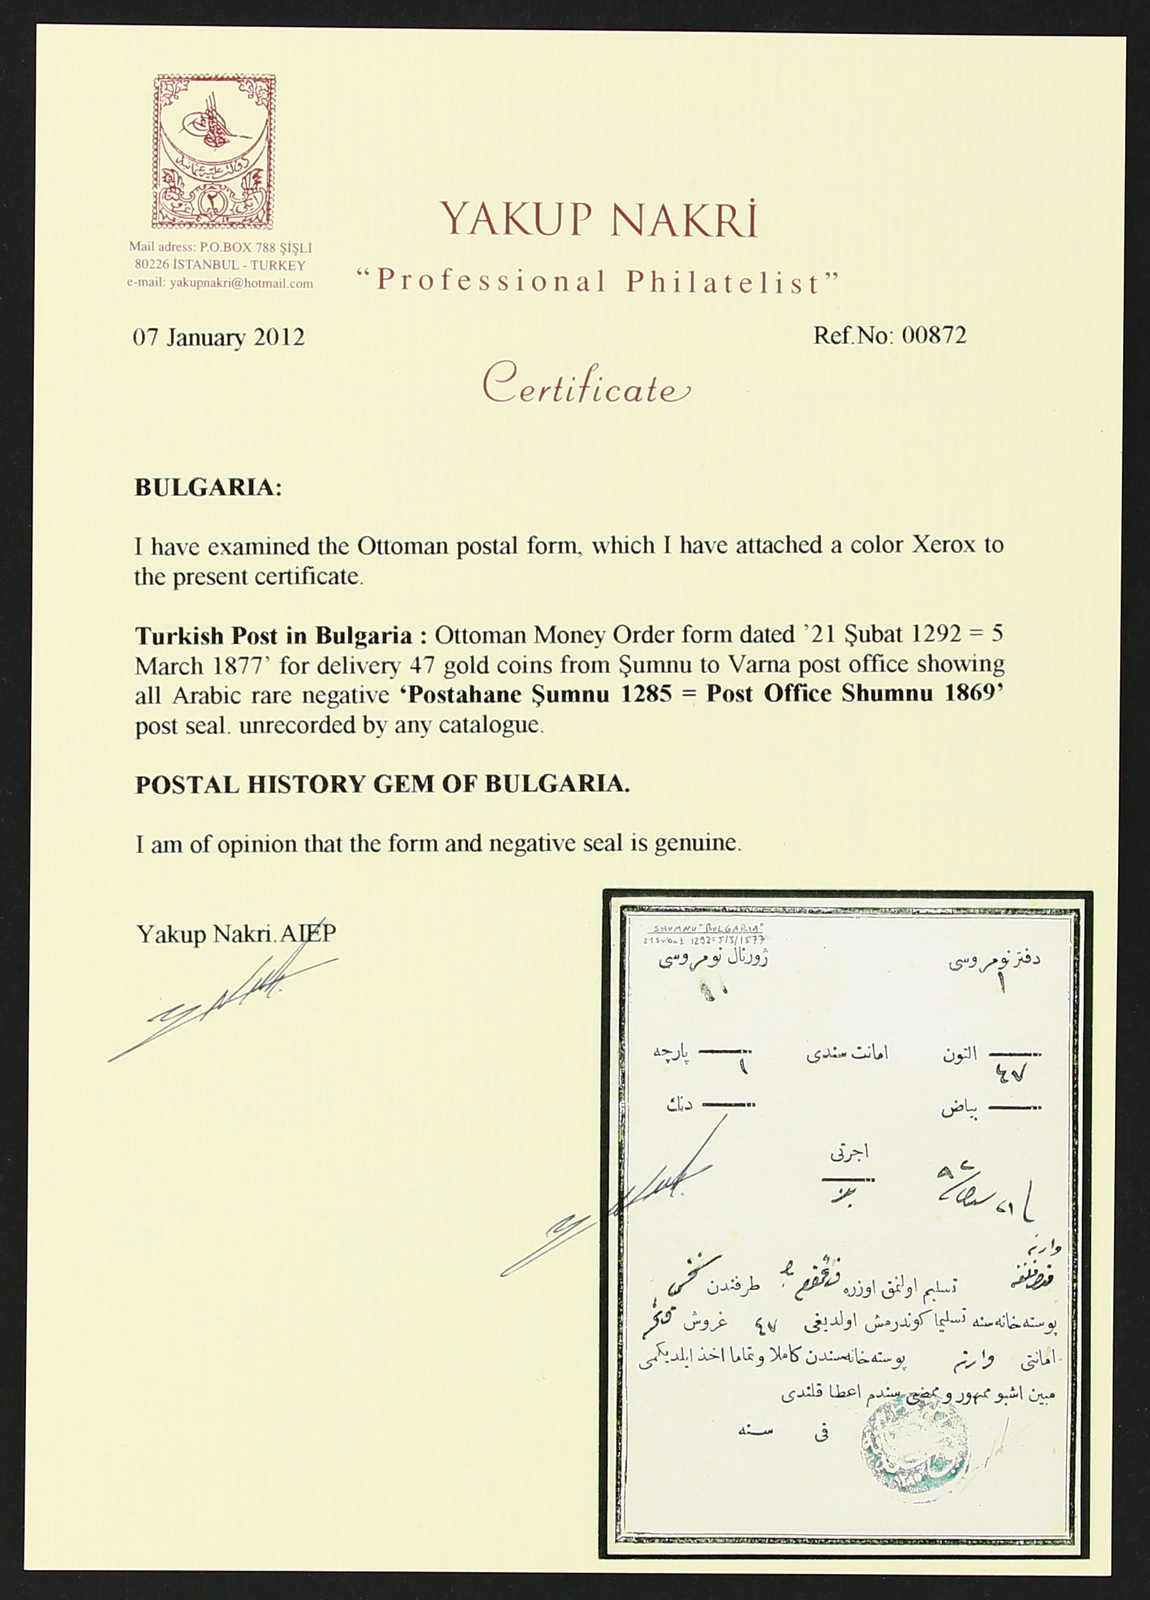 Mail adress: P.O.BOX 788 ŞİŞLİ
80226 İSTANBUL - TURKEY
e-mail: yakupnakri@hotmail.com
YAKUP NAKRİ
“Professional Philatelist”
07 January 2012
Ref.No: 00872
Certificate
BULGARIA:
I have examined the Ottoman postal form, which I have attached a color Xerox to
the present certificate.
Turkish Post in Bulgaria : Ottoman Money Order form dated ’21 Şubat 1292 = 5
March 1877’ for delivery 47 gold coins from Şumnu to Varna post office showing
all Arabic rare negative ‘Postahane Şumnu 1285 = Post Office Shumnu 1869’
post seal. unrecorded by any catalogue.
POSTAL HISTORY GEM OF BULGARIA.
I am of opinion that the form and negative seal is genuine.
Yakup Nakri.AIEP
SHUMNU "BULGARIA"
21 Subat 1292=5/3/1877
دفتر نومروسی ژورنال نومروسی
١ ١١
التون امانت سندی پارچه
٤٧ ١
بیاض دنك
اجرتی
وارنه
تسلیم اولنمق اوزره طرفندن
پوسته‌خانه‌سنه تسلیما کوندرمش اولدیغی ٤٧ غروش
امانتی وارنه پوسته‌خانه‌سندن کاملا و تماما اخذ ایلدیکمی
مبین اشبو ممهور و ممضی سندم اعطا قلندی
فی سنه